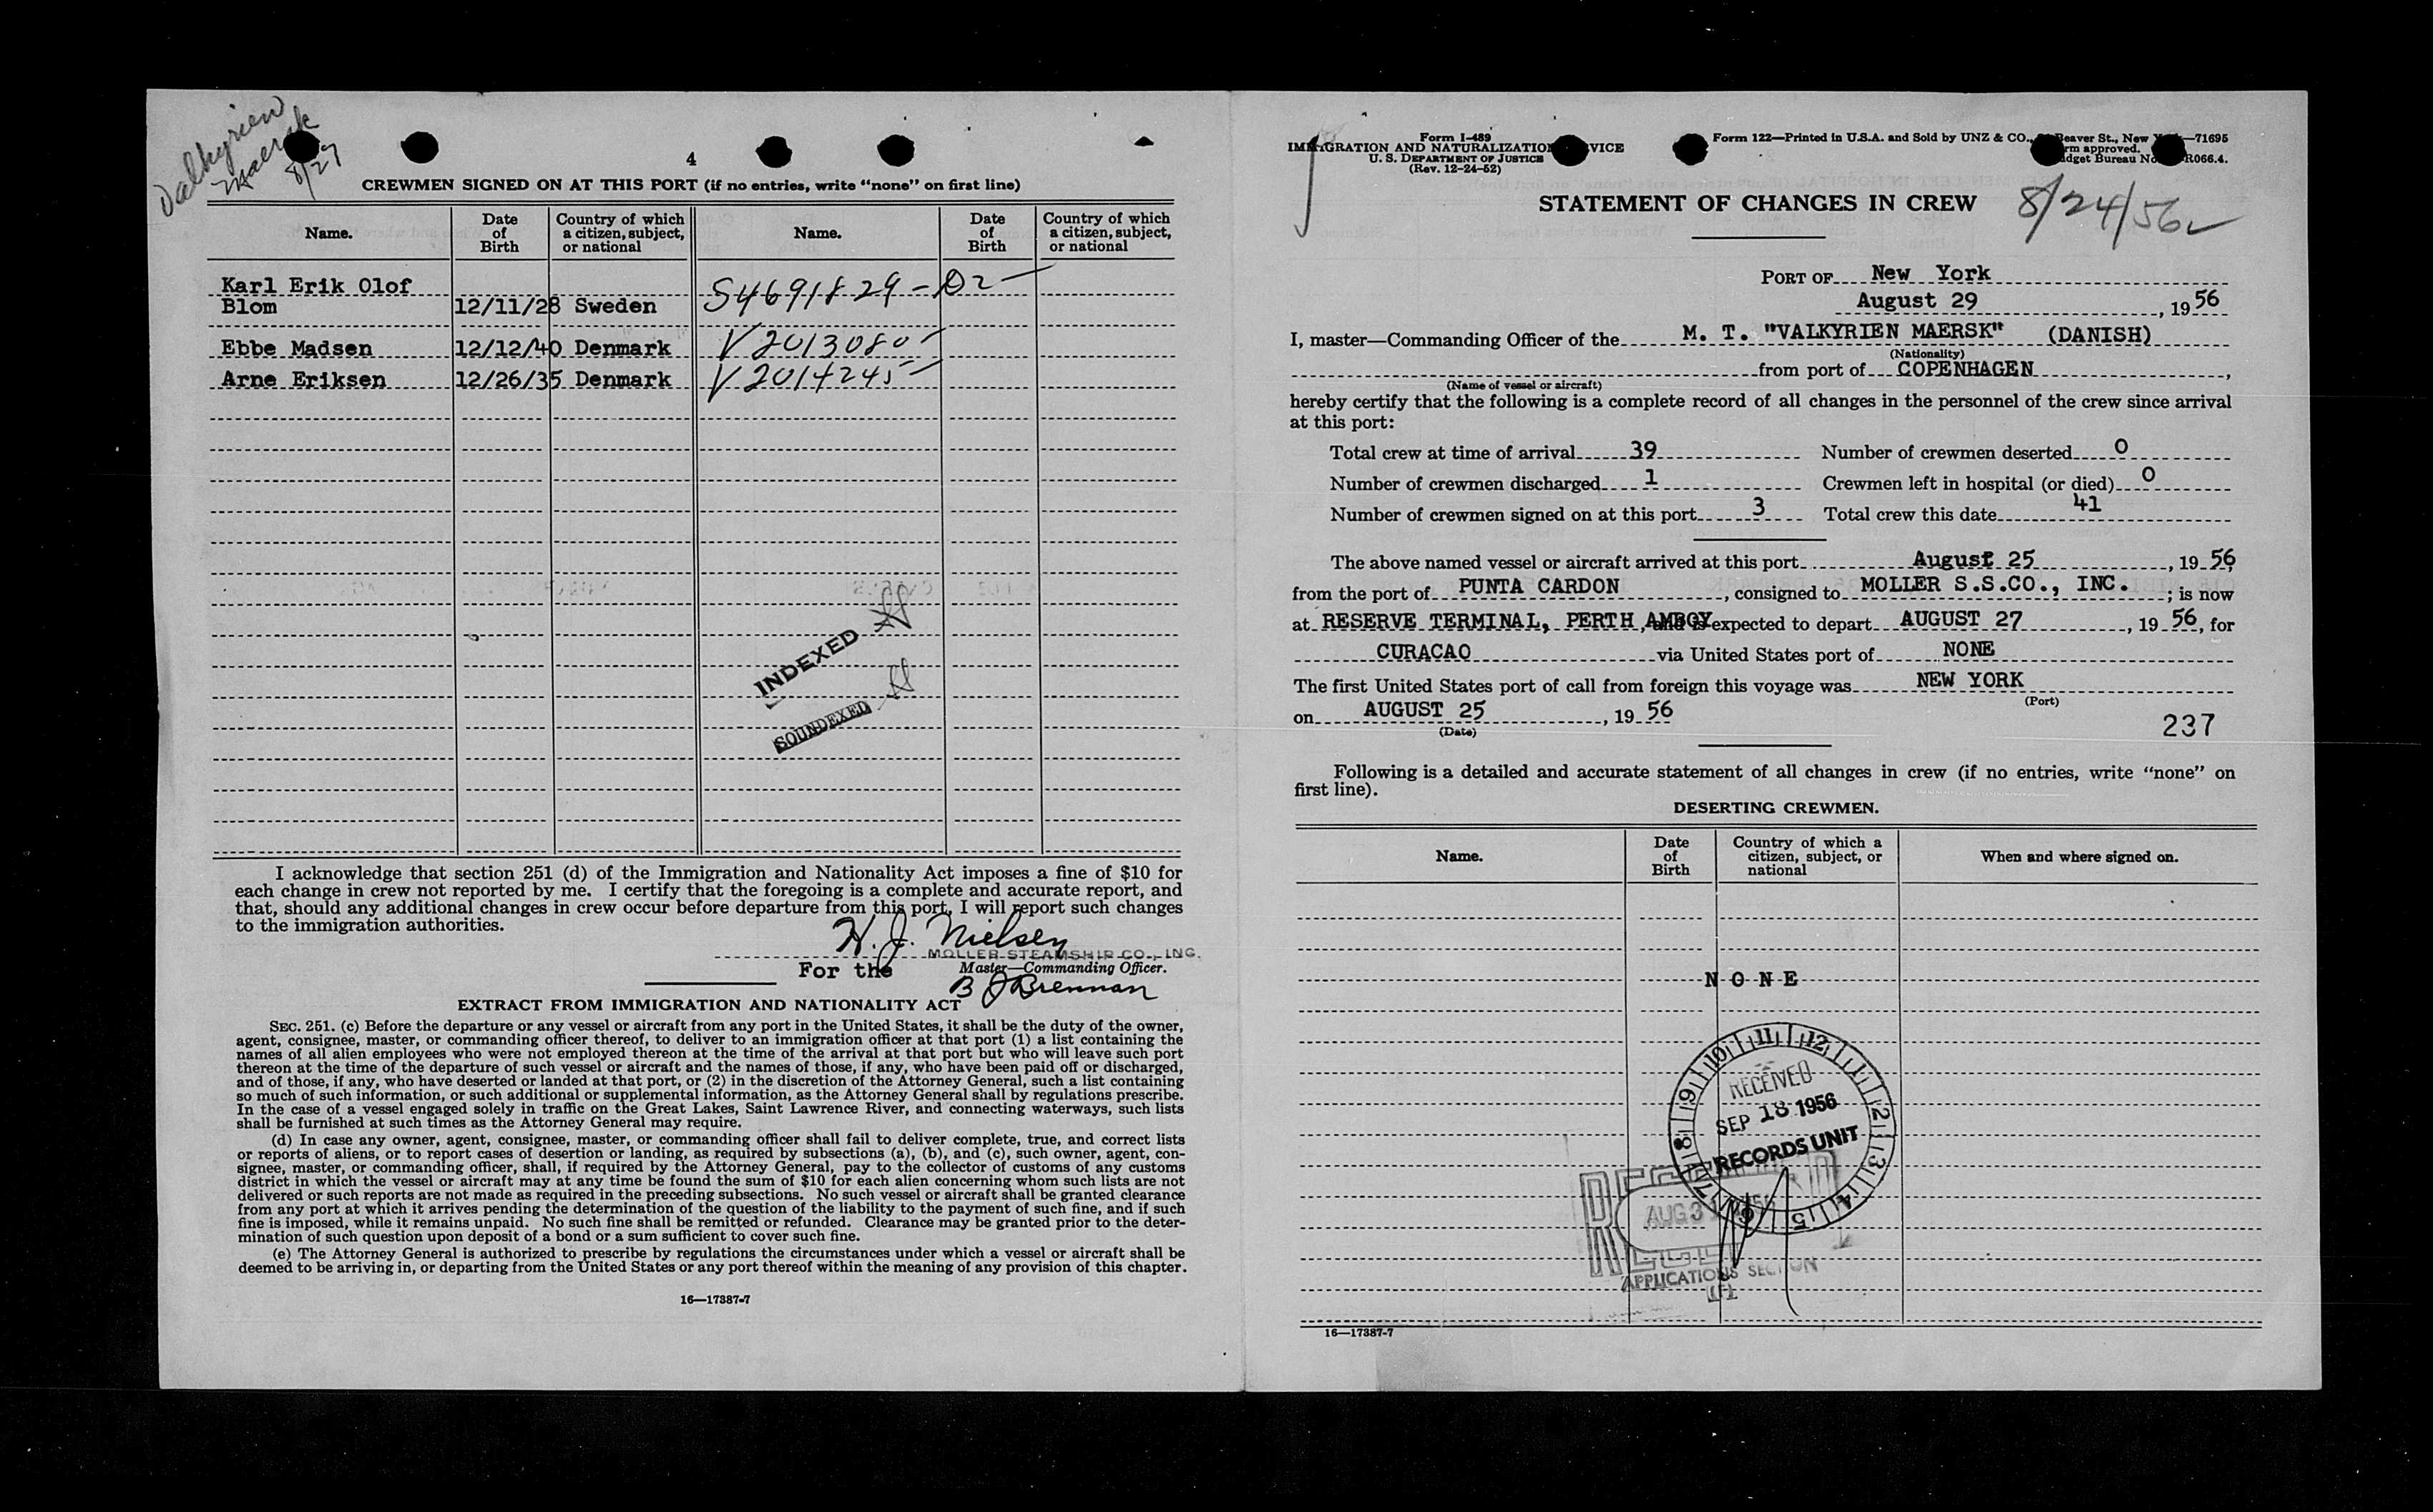 Valkyrien
Maersk
8/27
4
CREWMEN SIGNED ON AT THIS PORT (if no entries, write "none" on first line)
Name. Date of Birth Country of which a citizen, subject, or national Name. Date of Birth Country of which a citizen, subject, or national
Karl Erik Olof
Blom 12/11/28 Sweden S4691829-D2
Ebbe Madsen 12/12/40 Denmark V2013080
Arne Eriksen 12/26/35 Denmark V2014245
INDEXED
SOUNDEXED
I acknowledge that section 251 (d) of the Immigration and Nationality Act imposes a fine of $10 for
each change in crew not reported by me. I certify that the foregoing is a complete and accurate report, and
that, should any additional changes in crew occur before departure from this port, I will report such changes
to the immigration authorities.
H. J. Nielsen
MOLLER STEAMSHIP CO., INC.
For the Master—Commanding Officer.
B J Brennan
EXTRACT FROM IMMIGRATION AND NATIONALITY ACT
SEC. 251. (c) Before the departure or any vessel or aircraft from any port in the United States, it shall be the duty of the owner,
agent, consignee, master, or commanding officer thereof, to deliver to an immigration officer at that port (1) a list containing the
names of all alien employees who were not employed thereon at the time of the arrival at that port but who will leave such port
thereon at the time of the departure of such vessel or aircraft and the names of those, if any, who have been paid off or discharged,
and of those, if any, who have deserted or landed at that port, or (2) in the discretion of the Attorney General, such a list containing
so much of such information, or such additional or supplemental information, as the Attorney General shall by regulations prescribe.
In the case of a vessel engaged solely in traffic on the Great Lakes, Saint Lawrence River, and connecting waterways, such lists
shall be furnished at such times as the Attorney General may require.
(d) In case any owner, agent, consignee, master, or commanding officer shall fail to deliver complete, true, and correct lists
or reports of aliens, or to report cases of desertion or landing, as required by subsections (a), (b), and (c), such owner, agent, con-
signee, master, or commanding officer, shall, if required by the Attorney General, pay to the collector of customs of any customs
district in which the vessel or aircraft may at any time be found the sum of $10 for each alien concerning whom such lists are not
delivered or such reports are not made as required in the preceding subsections. No such vessel or aircraft shall be granted clearance
from any port at which it arrives pending the determination of the question of the liability to the payment of such fine, and if such
fine is imposed, while it remains unpaid. No such fine shall be remitted or refunded. Clearance may be granted prior to the deter-
mination of such question upon deposit of a bond or a sum sufficient to cover such fine.
(e) The Attorney General is authorized to prescribe by regulations the circumstances under which a vessel or aircraft shall be
deemed to be arriving in, or departing from the United States or any port thereof within the meaning of any provision of this chapter.
16—17387-7
Form I-489
IMMIGRATION AND NATURALIZATION SERVICE
U. S. DEPARTMENT OF JUSTICE
(Rev. 12-24-52)
Form 122—Printed in U.S.A. and Sold by UNZ & CO., Beaver St., New —71695
approved.
Budget Bureau No. R066.4.
STATEMENT OF CHANGES IN CREW
8/24/56
PORT OF New York
August 29, 19 56
I, master—Commanding Officer of the M. T. "VALKYRIEN MAERSK" (DANISH)
(Nationality)
from port of COPENHAGEN,
(Name of vessel or aircraft)
hereby certify that the following is a complete record of all changes in the personnel of the crew since arrival
at this port:
Total crew at time of arrival 39 Number of crewmen deserted 0
Number of crewmen discharged 1 Crewmen left in hospital (or died) 0
Number of crewmen signed on at this port 3 Total crew this date 41
The above named vessel or aircraft arrived at this port August 25, 19 56
from the port of PUNTA CARDON, consigned to MOLLER S.S.CO., INC.; is now
at RESERVE TERMINAL, PERTH AMBOY, and is expected to depart AUGUST 27, 19 56, for
CURACAO via United States port of NONE
The first United States port of call from foreign this voyage was NEW YORK
(Port)
on AUGUST 25, 19 56
(Date)
237
Following is a detailed and accurate statement of all changes in crew (if no entries, write "none" on
first line).
DESERTING CREWMEN.
Name. Date of Birth Country of which a citizen, subject, or national When and where signed on.
N O N E
10 11 12 1 2 3 4 5 6 7 8 9
RECEIVED
SEP 18 1956
RECORDS UNIT
RECEIVED
AUG 31 1956
APPLICATIONS SECTION
16—17387-7